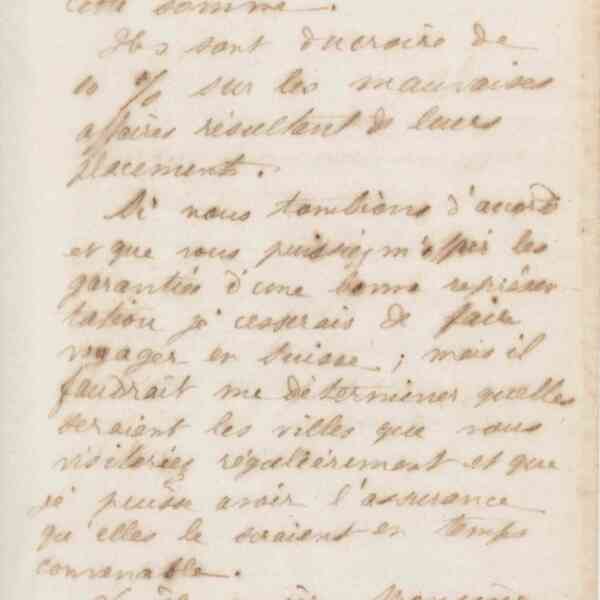 cette somme.
Ils sont ducroire de
10 % sur les mauvaises
affaires résultant de leurs
placements.
Si nous tombions d'accord
et que vous puissiez m'offrir les
garanties d'une bonne représen-
tation je cesserais de faire
voyager en Suisse ; mais il
faudrait me déterminer quelles
seraient les villes que vous
visiteriez régulièrement et que
je puisse avoir l'assurance
qu'elles le seraient en temps
convenable.
Monsieur